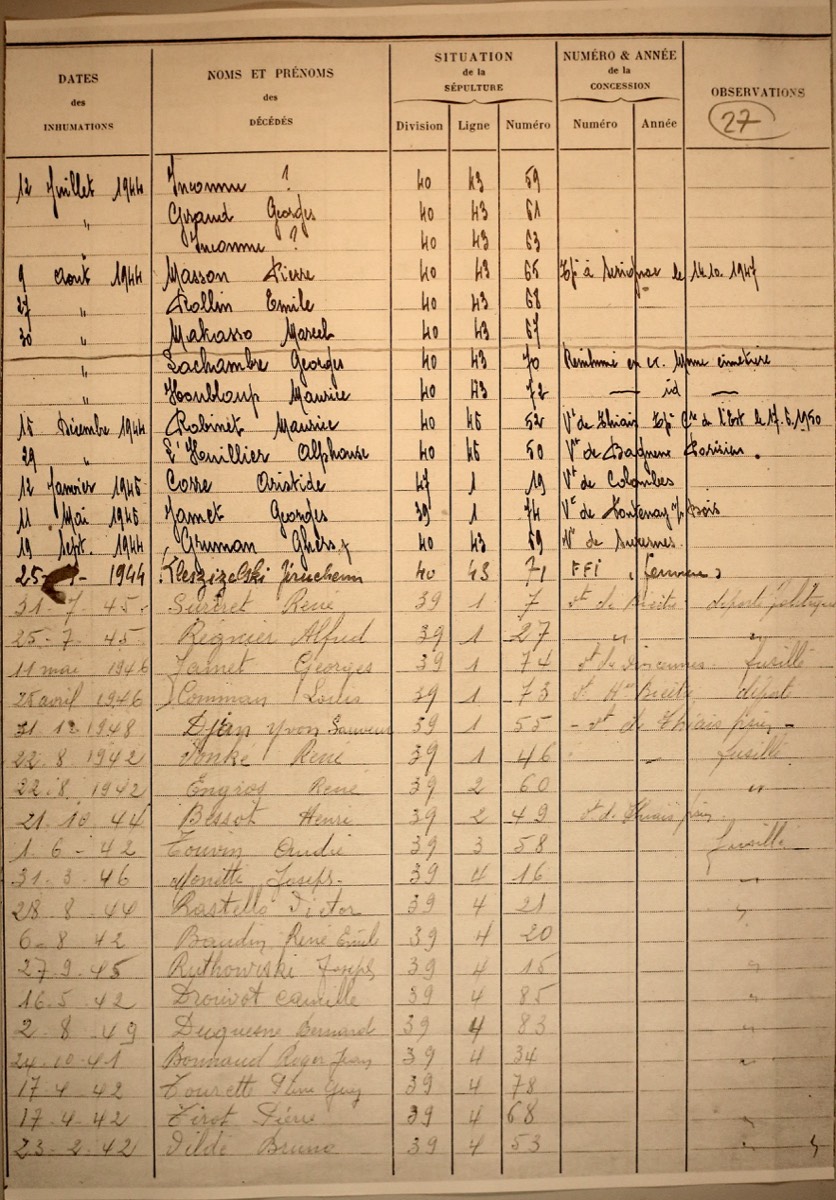 DATES des INHUMATIONS NOMS ET PRÉNOMS des DÉCÉDÉS SITUATION de la SÉPULTURE NUMÉRO & ANNÉE de la CONCESSION OBSERVATIONS
27
Division Ligne Numéro Numéro Année
12 Juillet 1944 Inconnu ? 40 43 59
" Giraud Georges 40 43 61
" Inconnu ? 40 43 63
9 Aout 1944 Masson Pierre 40 43 65 à le 14.10.1947
27 " Rollin Emile 40 43 68
30 " Makasso Marcel 40 43 67
" Lachambre Georges 40 43 70 Réinhumé en même cimetière
" Maurice 40 43 72 — id —
15 Décembre 1944 Robinet Maurice 40 45 52 Vt de Thiais de l'Est le 17.5.1950
29 " L'Huillier Alphonse 40 45 50 Vt de Bagneux Parisien.
12 Janvier 1945 Corre Aristide 47 1 19 Vt de Colombes
11 Mai 1945 Jamet Georges 39 1 74 Vt de Fontenay s/ Bois
19 Sept. 1944 Gruman 40 43 69 Vt de Suresnes
25 - - 1944 40 43 71 FFI
31-7-45 René 39 1 7 vt de déporté politique
25-7-45 Régnier Alfred 39 1 27 " "
11 mai 1946 Jamet Georges 39 1 74 vt de Vincennes. fusillé
avril 1946 Comman Louis 39 1 73 déport
31 12 1948 Djian Yvon Sauveur 39 1 55 - vt de Thiais -
22.8.1942 René 39 1 46 " fusillé
22.8.1942 Engros René 39 2 60 "
21.10.44 Bessot Henri 39 2 49 vt de Thiais
1.6-42 Touvin André 39 3 58 fusillé
31-3-46 Joseph 39 4 16 "
28-8-44 Rastello Victor 39 4 21 "
6-8-42 Baudin René Emile 39 4 20
27-9-45 Ruthowiski Joseph 39 4 15 "
16.5.42 Drouvot Camille 39 4 85 "
2.8-49 Duquesne Bernard 39 4 83 "
24-10-41 Bonnaud Roger Jean 39 4 34 "
17-4-42 Tourette Guy 39 4 78
17-4-42 Tirot Pierre 39 4 68 "
23-2-42 Tildé Bruno 39 4 53 "